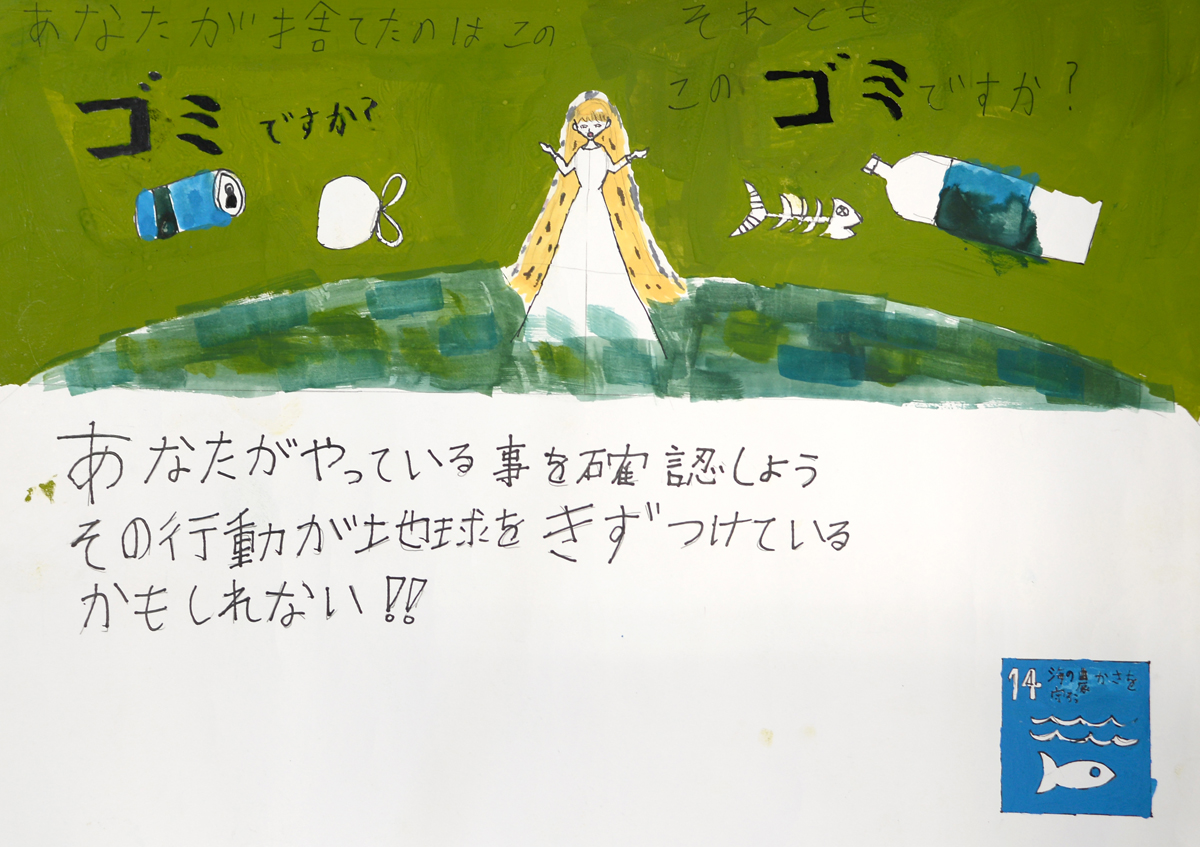 あなたが捨てたのはこの
ゴミですか?
それとも
このゴミですか?
あなたがやっている事を確認しよう
その行動が地球をきずつけている
かもしれない!!
14 海の豊かさを
守ろう